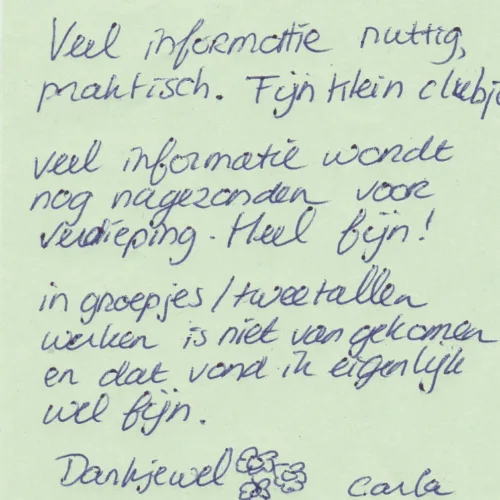 Veel informatie nuttig,
praktisch. Fijn klein clubje
veel informatie wordt
nog nagezonden voor
verdieping. Heel fijn!
in groepjes / tweetallen
werken is niet van gekomen
en dat vond ik eigenlijk
wel fijn.
Dankjewel Carla